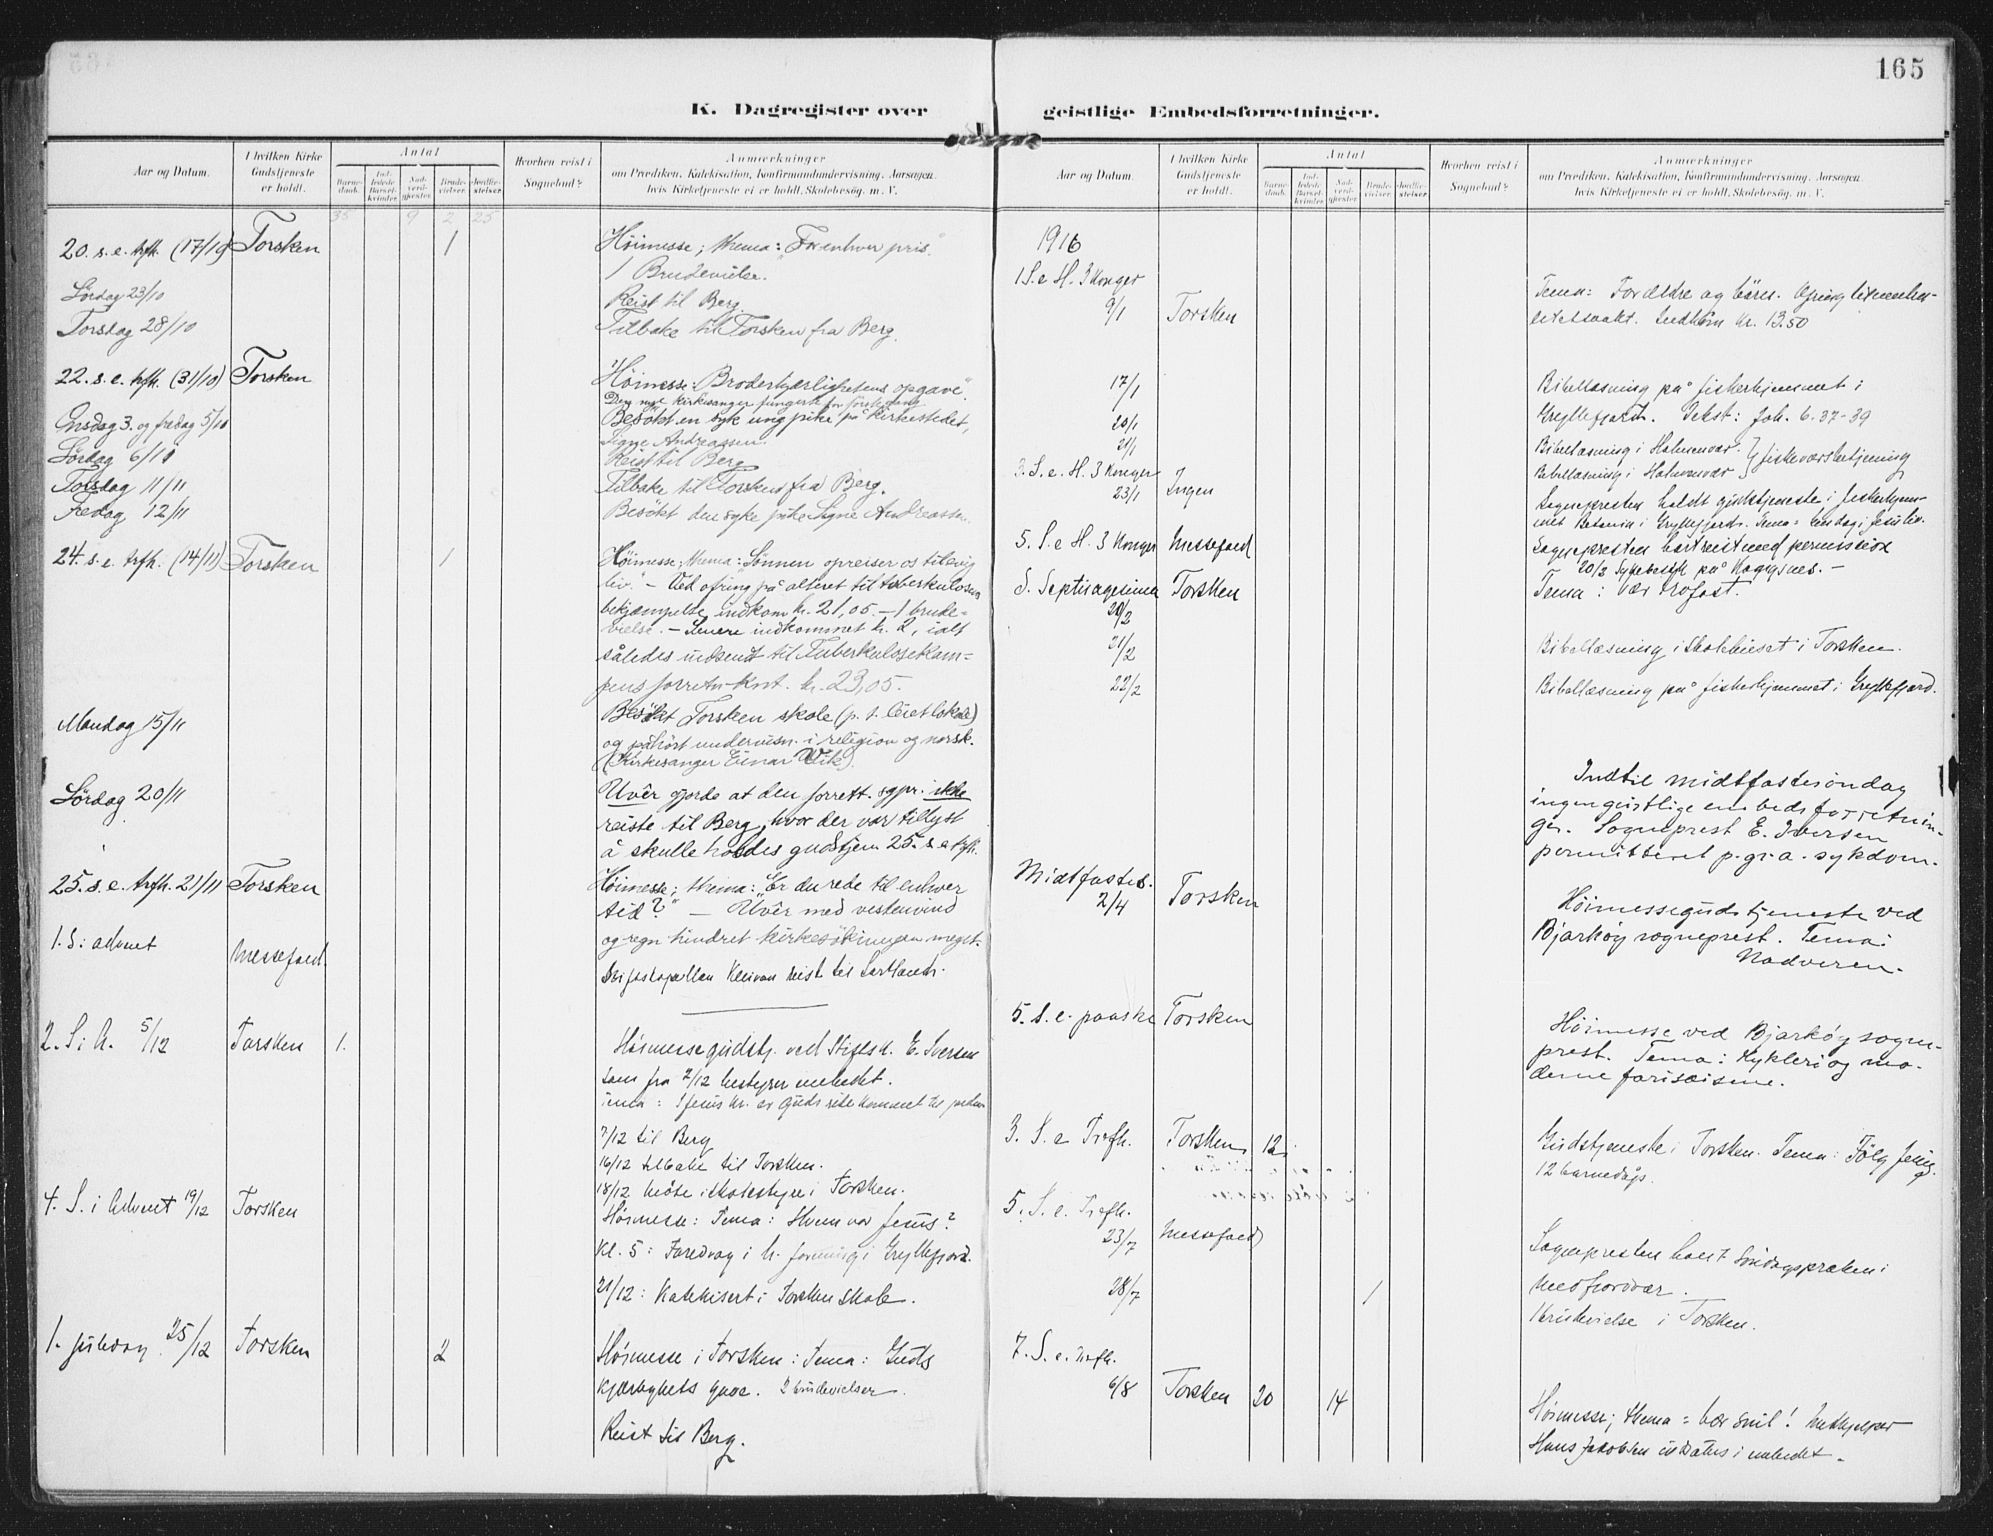 165
K. Dagregister over geistlige Embedsforretninger.
Aar og Datum.
I hvilken Kirke Gudstjeneste er holdt.
Antal
Barnedaab.
Indledede Barselkvinder.
Nadverdgjester.
Brudevielser.
Jordfæstelser.
Hvorhen reist i Sognebud?
Anmerkninger
om Prædiken, Katekisation, Konfirmandundervisning, Aarsagen,
hvis Kirketjeneste ei er holdt, Skolebesøg. m. V.
35 9 2 25
20. s. e. trfh. (17/10) Torsken 1 Høimesse; thema: "For enhver pris."
1 Brudevielse.
Lördag 23/10 Reist til Berg.
Torsdag 28/10 Tilbake til Torsken fra Berg.
22. s. e. trfh. (31/10) Torsken Høimesse: "Broderkjærlighetens opgave".
Den nye kirkesanger fungerte for første gang
Onsdag 3. og fredag 5/11 Besökt en syk ung pike på kirkestedet,
Signe Andreassen.
Lördag 6/11 Reist til Berg
Torsdag 11/11 Tilbake til Torsken fra Berg.
Fredag 12/11 Besökt den syke pike Signe Andreassen.
24. s. e. trfh. (14/11) Torsken 1 Høimesse; thema: Sønnen opreiser os til evig
liv." – Ved ofring på alteret til tuberkulosens
bekjæmpelse indkom kr. 21,05. – 1 brude-
vielse. – Senere indkommet kr. 2, ialt
således indsendt til Tuberkulosekam-
pens forretn.knt. kr. 23,05.
Mandag 15/11 Besökt Torsken skole (p. t. leiet lokale)
og påhört undervisn. i religion og norsk.
(Kirkesanger Einar Wik).
Lördag 20/11 Uvêr gjorde at den forrett. sgpr. ikke
reiste til Berg, hvor der var tillyst
å skulle holdes gudstjen 25. s e trfh.
25. s. e. trfh. 21/11 Torsken Høimesse; thema: "Er du rede til enhver
tid?" – Uvêr med vestenvind
og regn hindret kirkesökningen meget.
1. S. i advent Messefald. Stiftskapellan reist til Sortland.
2. S. i A. 5/12 Torsken 1. Høimessegudstj. ved Stiftsk. E. Iversen
som fra 2/12 bestyrer embedet.
Tema: I Jesus Kr. er Guds rike kommet til jorden
7/12 til Berg
16/12 tilbake til Torsken.
18/12 Møte i skolestyre i Torsken.
4. S. i Advent 19/12 Torsken Høimesse: Tema: Hvem var Jesus?
Kl. 5: Foredrag i k. forening i Gryllefjord.
21/12: Katekisert i Torsken skole.
1. juledag 25/12 Torsken 2 Høimesse i Torsken: Tema: Guds
kjærlighets gave. 2 brudevielser.
Reist til Berg.
Aar og Datum.
I hvilken Kirke Gudstjeneste er holdt.
Antal
Barnedaab.
Indledede Barselkvinder.
Nadverdgjester.
Brudevielser.
Jordfæstelser.
Hvorhen reist i Sognebud?
Anmerkninger
om Prædiken, Katekisation, Konfirmandundervisning, Aarsagen,
hvis Kirketjeneste ei er holdt, Skolebesøg. m. V.
1916
1 S. e H. 3 Konger
9/1 Torsken Tema: Forældre og børn. Ofring til menhe-
Indkom kr. 13.50
17/1 Bibellæsning på fiskerhjemmet i
Gryllefjord. Tekst: Joh. 6.37-39
20/1 Bibellæsning i
21/1 Bibellæsning i
3. S. e. H. 3 Konger
23/1 Ingen Sognepresten holdt gudstjeneste i fiskerhjem-
met Betania i Gryllefjord. Tema:
5. S. e H. 3 Konger Messefald Sognepresten bortreist med permission
20/2 Sykebesøk på
S. Septuagesima Torsken Tema: Vær trofast.
20/2
21/2 Bibellæsning i skolehuset i Torsken.
22/2 Bibellæsning på fiskerhjemmet i Gryllefjord.
Indtil midtfastesöndag
ingen geistlige embedsforretnin-
ger. Sogneprest E. Iversen
permitteret p.gr.a. sykdom.
Midtfastes.
2/4 Torsken Höimessegudstjeneste ved
Bjarköy sogneprest. Tema:
Nadveren.
5. S. e. paaske Torsken Höimesse ved Bjarköy sogne-
prest. Tema: Hykleri og mo-
derne farisæisme.
3. S. e Trefh. Torsken 12 Gudstjeneste i Torsken. Tema: Følg Jesus.
12 barnedåp.
5. S. e. Trefh.
23/7 Messefald Sognepresten holdt Söndagspræken i
Medfjordvær.
28/7 1 Brudevielse i Torsken.
7. S. e. Trefh.
6/8 Torsken 20 14 Høimesse; thema: Vær snil! Medhjelper
Hans Jakobsen indsattes i embedet.